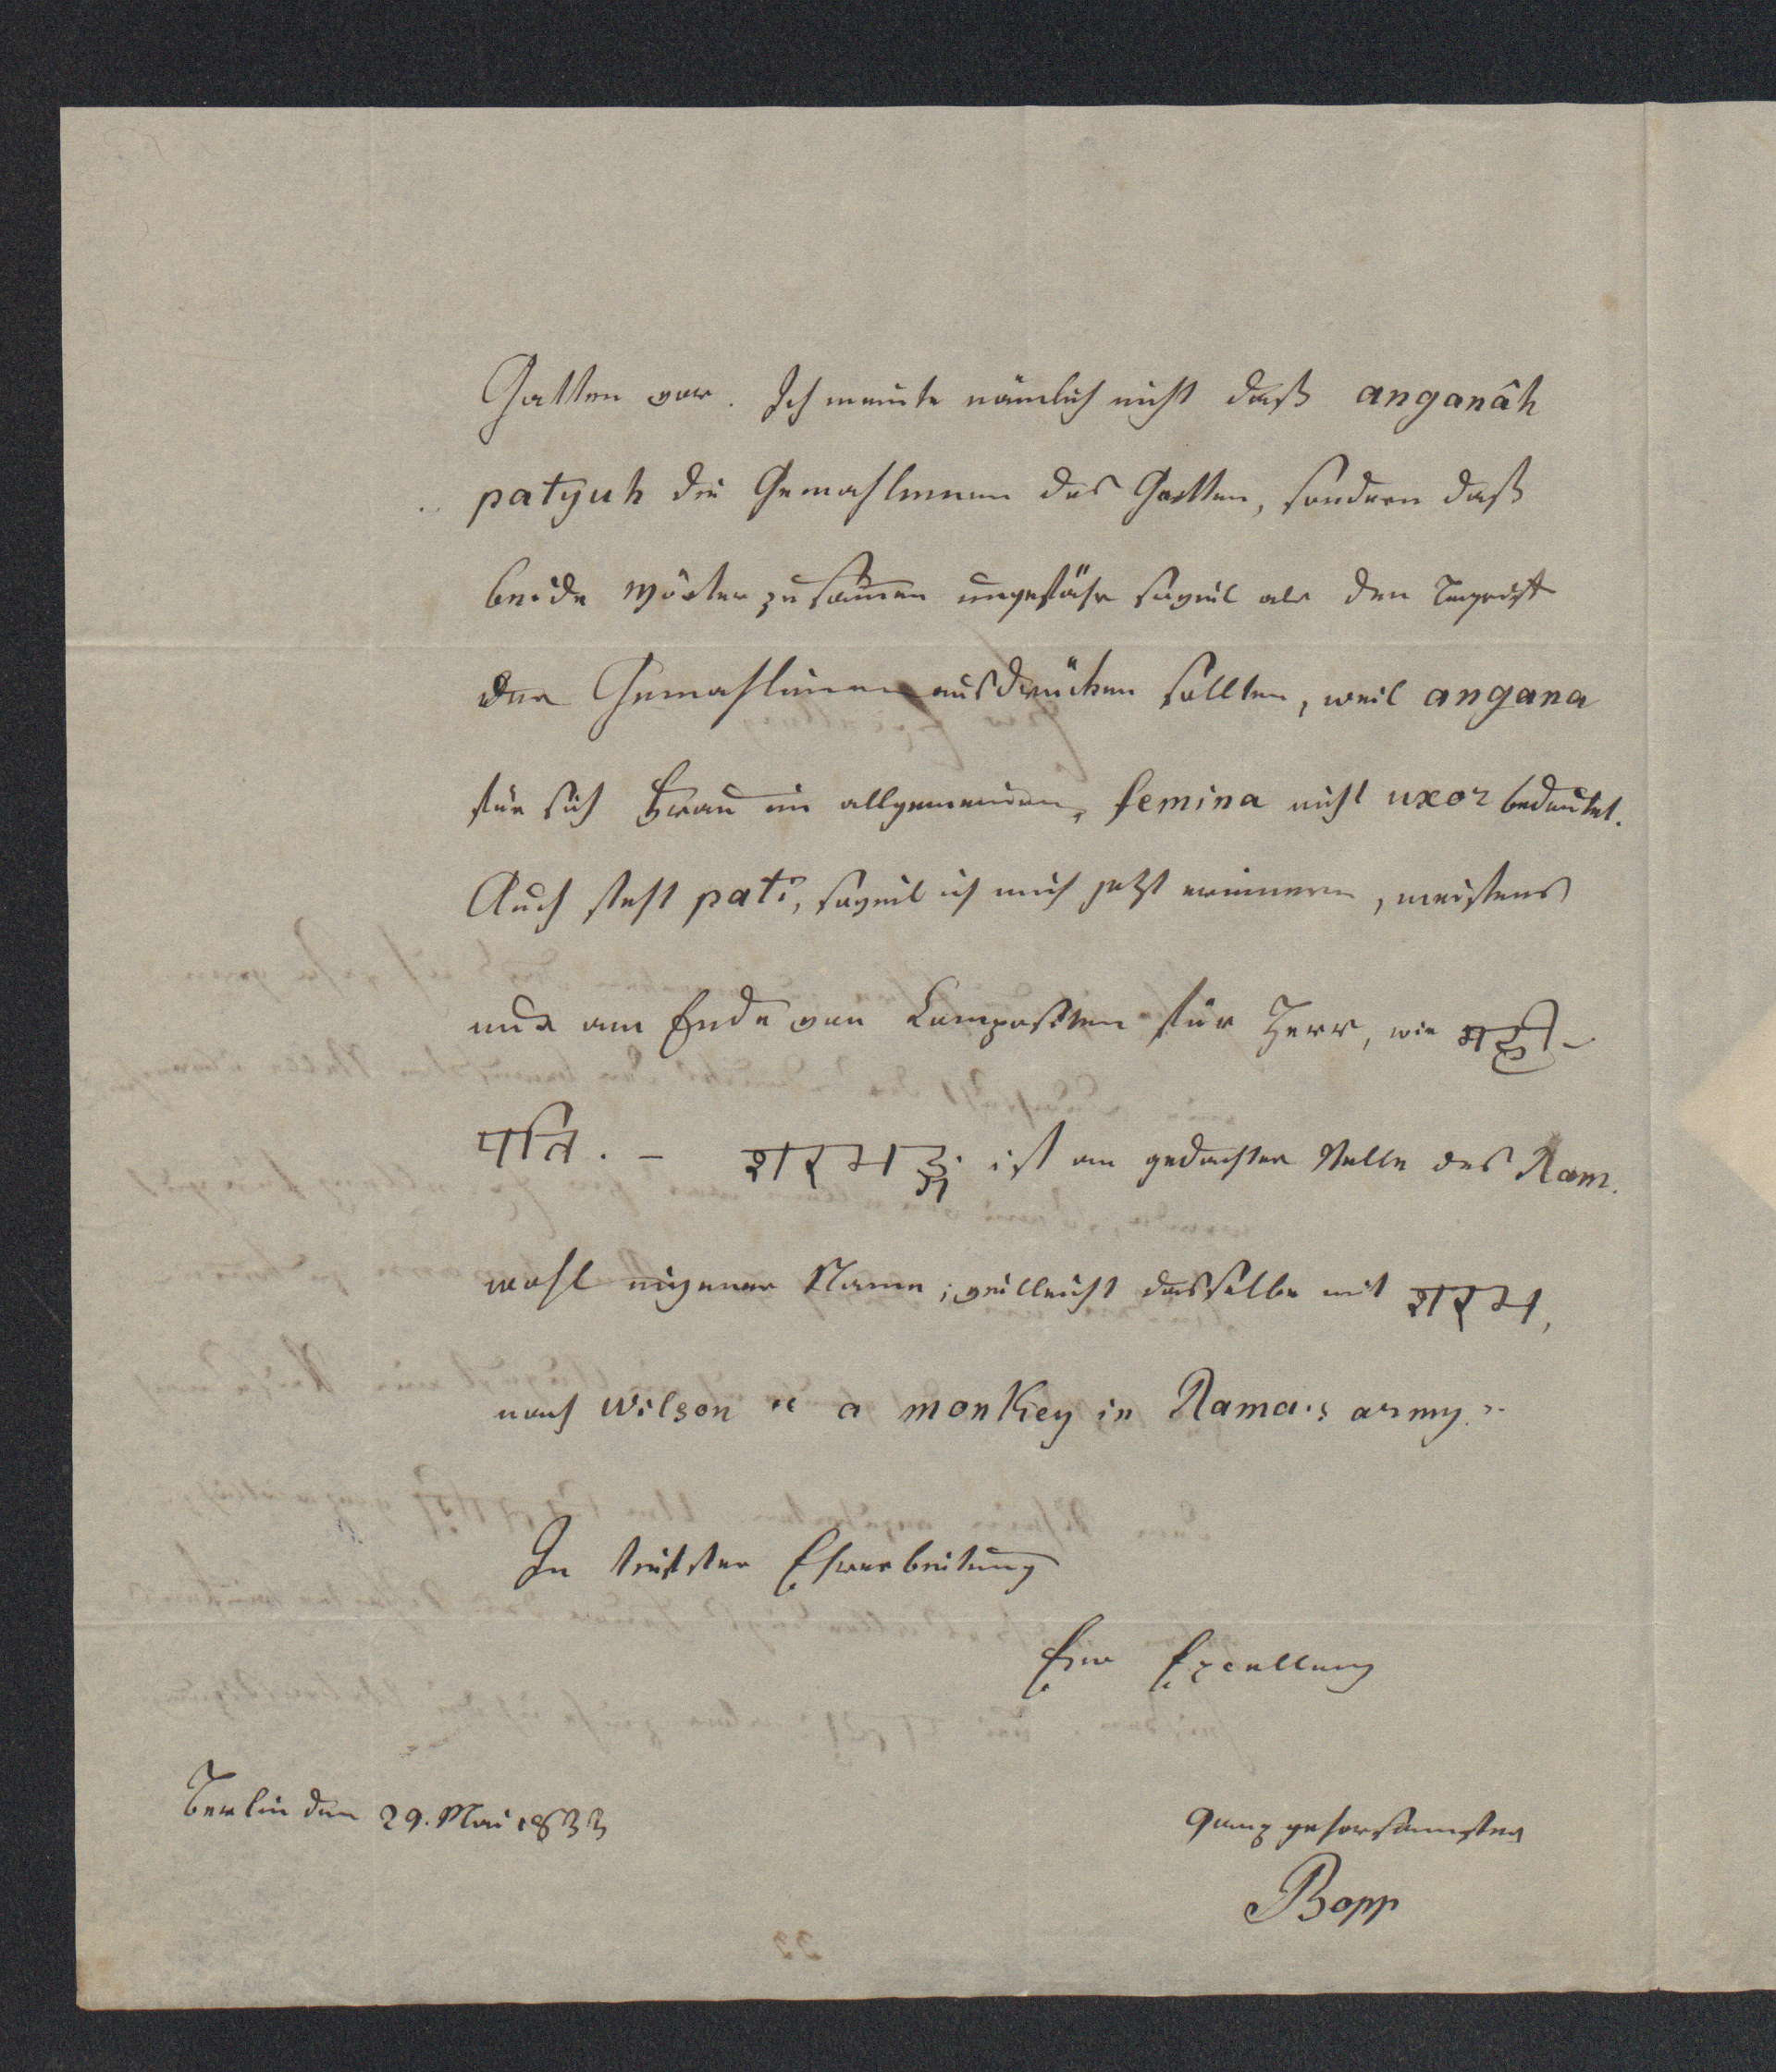 Gatten vor. Ich meinte nämlich nicht daß anganâh
patyuh die Gemahlinnen des Gatten, sondern daß
beide Wörter zusammen ungefähr soviel als den Begriff
der Gemahlinnen ausdrücken sollten, weil angana
für sich Frau im allgemeinen, femina nicht uxor bedeutet.
Auch steht pati, soviel ich mich jetzt erinnere, meistens
nur am Ende von Compositen für Herr, wie मही-
पति. – शरभ ist an gedachter Stelle des Ram.
wohl eigener Name; vielleicht dasselbe mit शरभ,
nach Wilson "a monkey in Rama's army."
In tiefster Ehrerbietung
Eur Excellenz
Berlin den 29. Mai 1833
ganz gehorsamster
Bopp